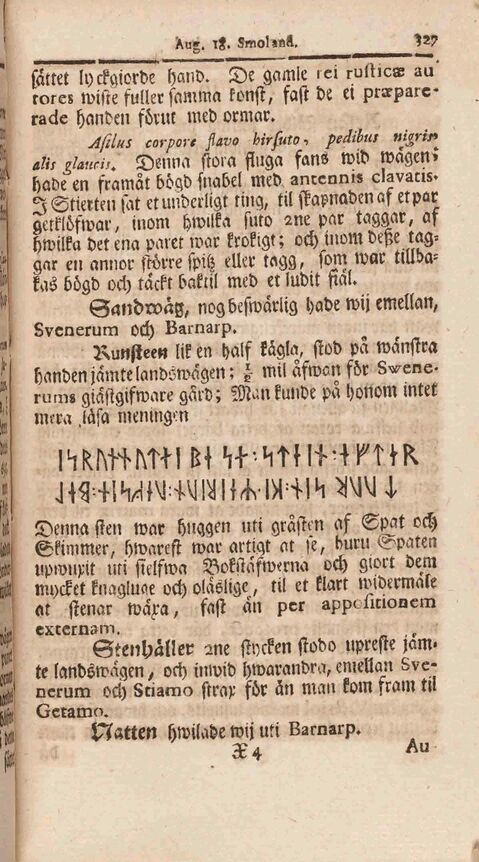 Aug. 18. Smoland. 327
sättet lyckgiorde hand. De gamle rei rusticæ au
tores wiste fuller samma konst, fast de ei præpare-
rade handen förut med ormar.
Asilus corpore flavo hirsuto, pedibus nigris
alis glaucis. Denna stora fluga fans wid wägen;
hade en framåt bögd snabel med antennis clavatis.
J Stierten sat et underligt ting, til skapnaden af et par
getklöfwar, inom hwilka suto 2ne par taggar, af
hwilka det ena paret war krokigt; och inom deße tag-
gar en annor större spitz eller tagg, som war tillba-
kas bögd och täckt baktil med et ludit fiäl.
Sandwäg, nog beswärlig hade wij emellan,
Svenerum och Barnarp.
Runsteen lik en half kägla, stod på wänstra
handen jämte landswägen; ½ mil äfwan för Swene-
rums giästgifware gård; Man kunde på honom intet
mera läsa meningen
Denna sten war huggen uti gråsten af Spat och
Skimmer, hwarest war artigt at se, huru Spaten
upwuxit uti sielfwa Bokstäfwerna och giort dem
mycket knagluge och oläslige, til et klart widermäle
at stenar wäxa, fast än per appositionem
externam.
Stenhäller 2ne stycken stodo upreste jäm-
te landswägen, och inwid hwarandra, emellan Sve-
nerum och Stiamo strax för än man kom fram til
Getamo.
Natten hwilade wij uti Barnarp.
X 4 Au